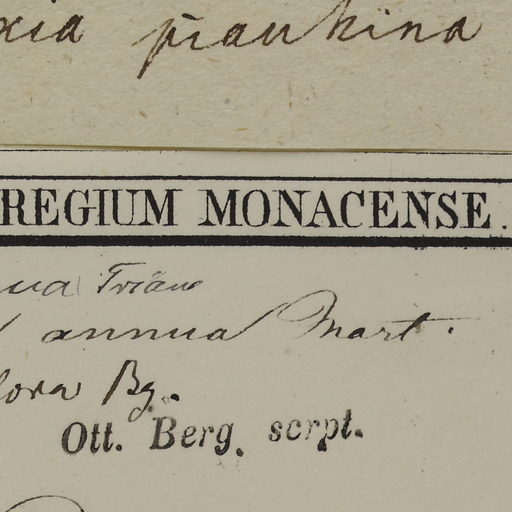 xia piauhina
REGIUM MONACENSE.
ua Triana
annua Mart.
lora Bg.
Ott. Berg. scrpt.